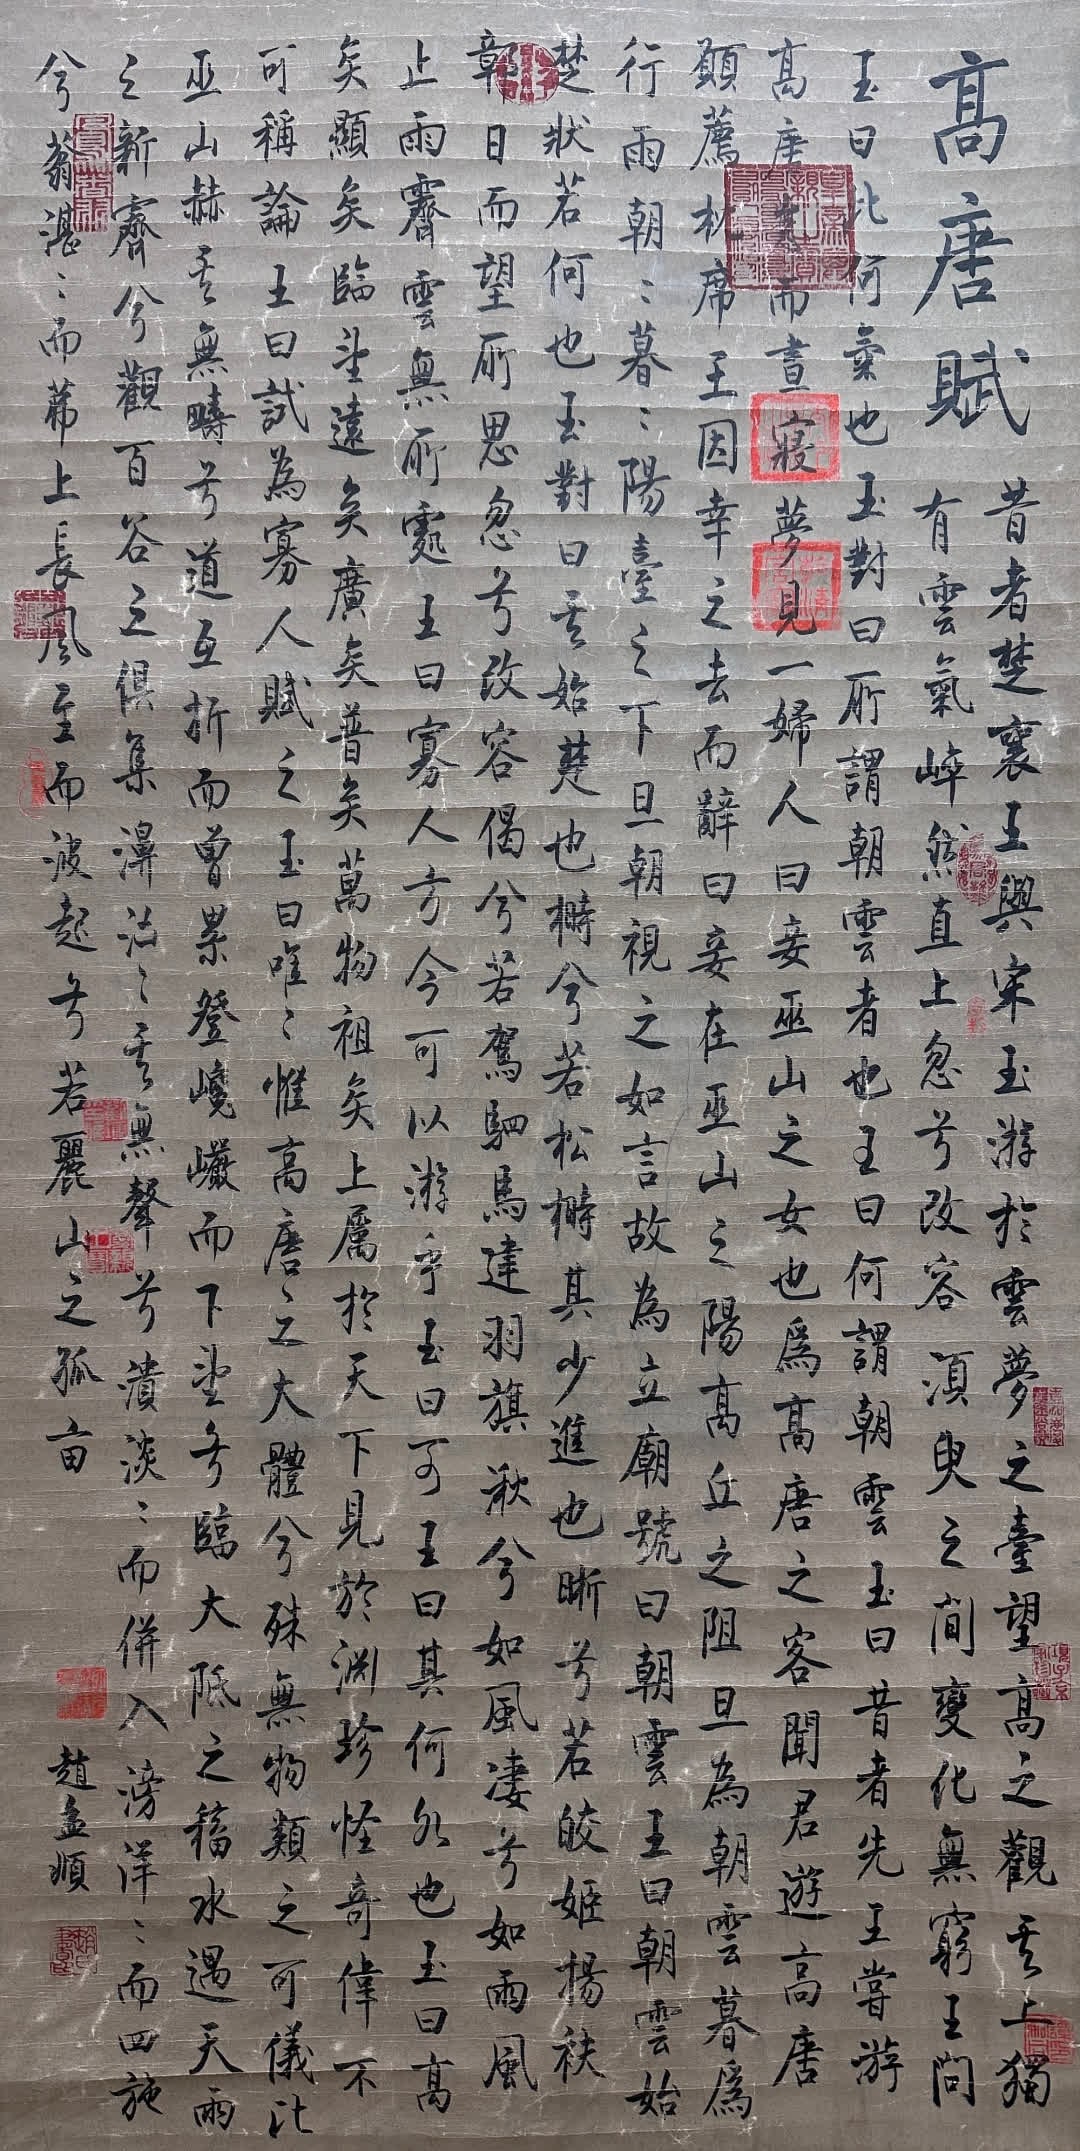 高唐賦
昔者楚襄王與宋玉游於雲夢之臺望高之觀其上獨
有雲氣崪然直上忽兮改容須臾之間變化無窮王問
玉曰此何氣也玉對曰所謂朝雲者也王曰何謂朝雲玉曰昔者先王嘗游
高唐怠而晝寢夢見一婦人曰妾巫山之女也爲高唐之客聞君遊高唐
願薦枕席王因幸之去而辭曰妾在巫山之陽高丘之阻旦為朝雲暮爲
行雨朝〻暮〻陽臺之下旦朝視之如言故為立廟號曰朝雲王曰朝雲始
楚狀若何也玉對曰其始楚也㯂兮若松榯其少進也晰兮若皎姬揚袂
鄣日而望所思忽兮改容偈兮若駕駟馬建羽旗湫兮如風淒兮如雨風
止雨霽雲無所處王曰寡人方今可以游乎玉曰可王曰其何如也玉曰高
矣顯矣臨望遠矣廣矣普矣萬物祖矣上屬於天下見於淵珍怪奇偉不
可稱論王曰試為寡人賦之玉曰唯〻惟高唐之大體兮殊無物類之可儀比
巫山赫其無疇兮道互折而曾累登巉巖而下望兮臨大阺之稸水遇天雨
之新霽兮觀百谷之俱集濞洶〻其無聲兮潰淡〻而併入滂洋〻而四施
兮蓊湛〻而苐上長風至而波起兮若麗山之孤亩
趙孟頫